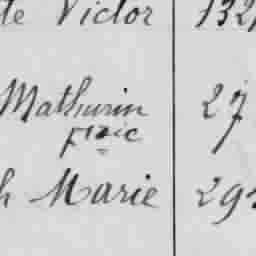 te Victor 132
Mathurin 27
h Marie 29